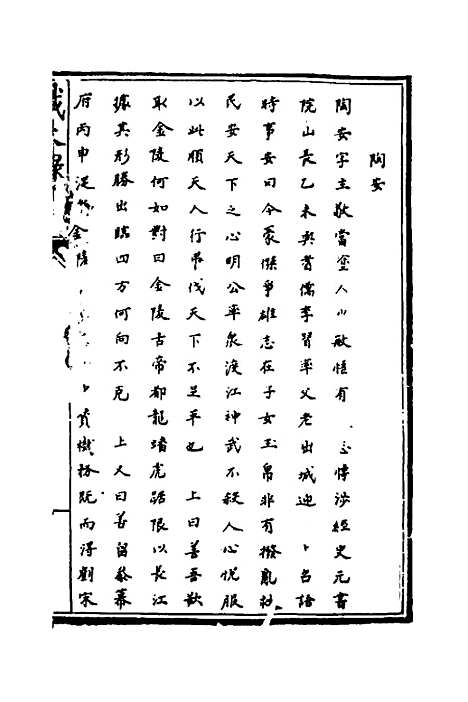 陶安
陶安字主敬當塗人少敏悟有 志博涉經史元書
院山長乙未與耆儒李習率父老出城迎 上召語
時事安曰今豪傑爭雄志在子女玉帛非有撥亂救
民安天下之心明公率衆渡江神武不殺人心悅服
以此順天人行弔伐天下不足平也 上曰善吾欲
取金陵何如對曰金陵古帝都龍蟠虎踞限以長江
據其形勝出臨四方何向不克 上又曰善留參幕
府丙申從 金陵 上 贊機務既而得劉宋